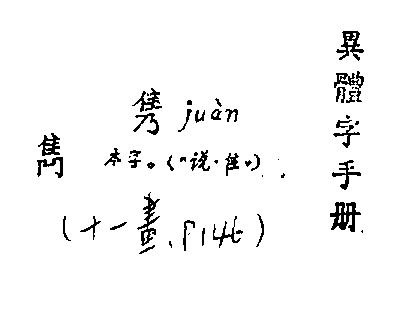 異體字手册
雋
隽 juàn
本字。（《说·隹》）.
（十一畫、P146）